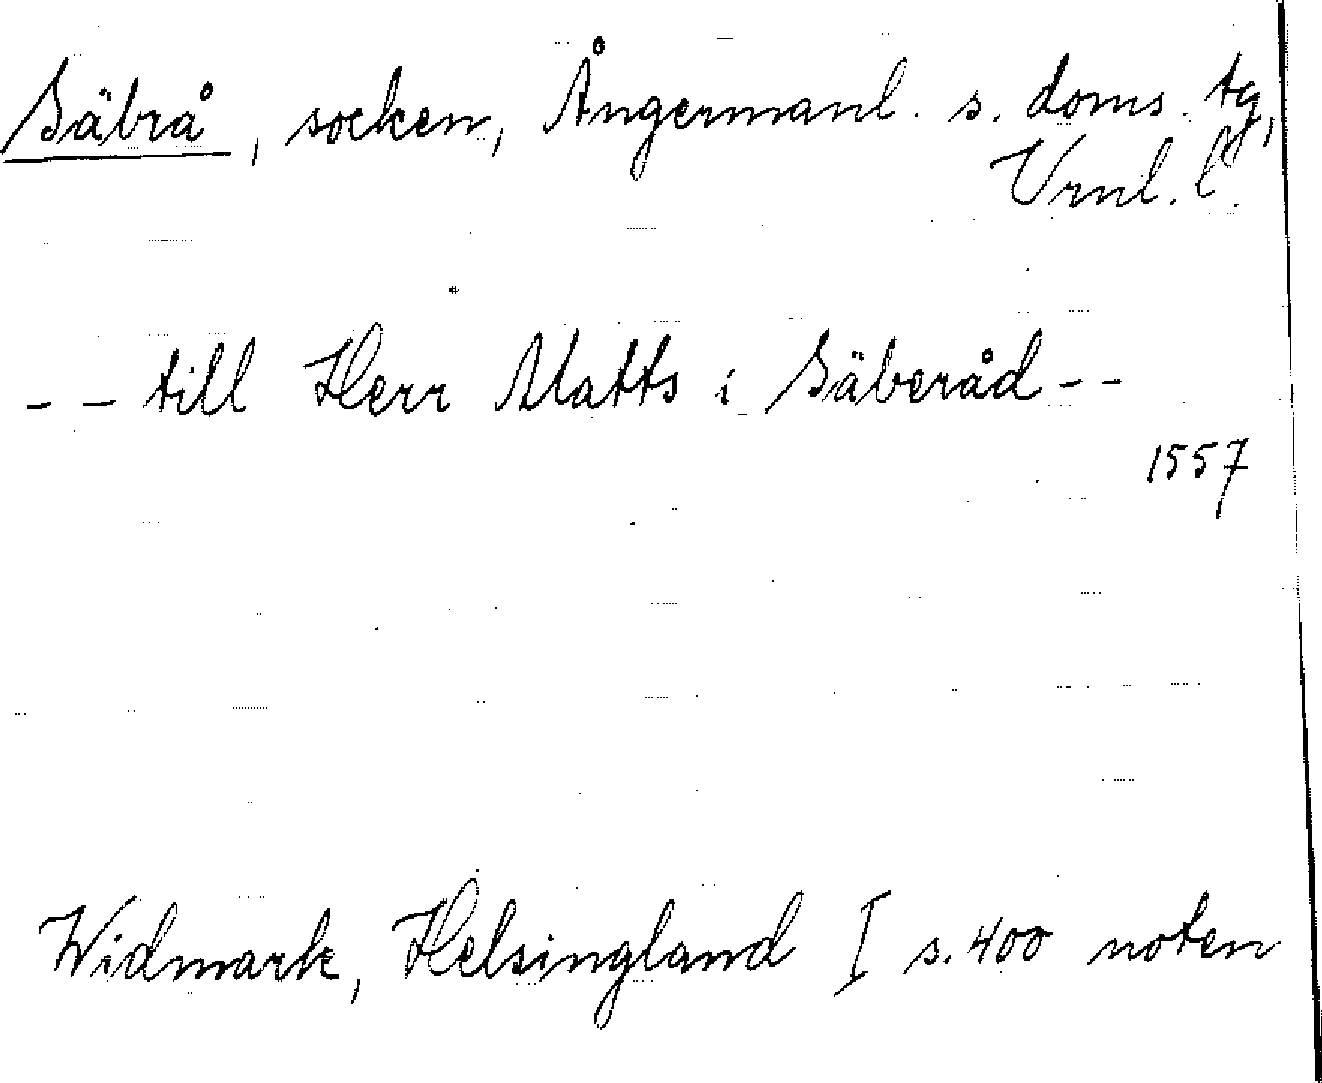 Säbrå, socken, Ångermanl. s. doms. tg,
Vrnl. l.
-- till Herr Matts i Säberåd --
1557
Widmark, Helsingland I s. 400 noten